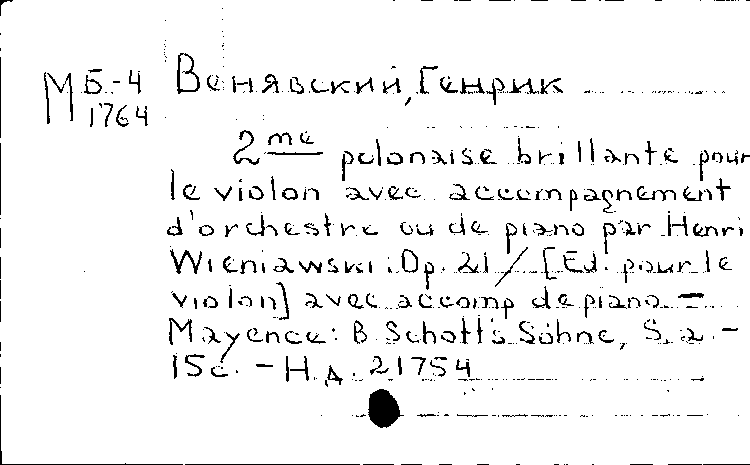 М Б-4
1764
Венявский, Генрик
2me polonaise brillante pour
le violon avec accompagnement
d'orchestre ou de piano par Henri
Wieniawski. Op. 21 / [Ed. pour le
violon] avec accomp de piano. –
Mayence: B. Schott's Söhne, S. a. –
15 с. – Н. д. 21754